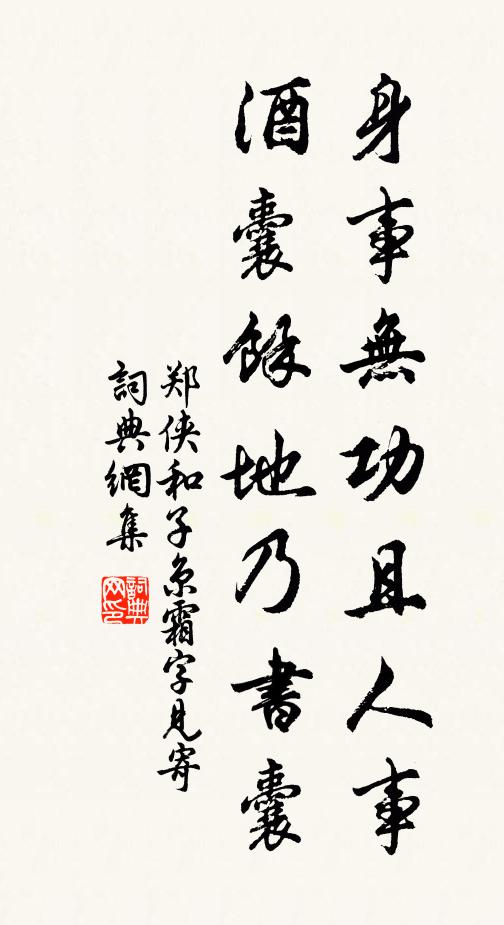 身事無功且人事
酒囊餘地乃書囊
郑侠和子京霜字見寄
詞典網集
詞典
网印